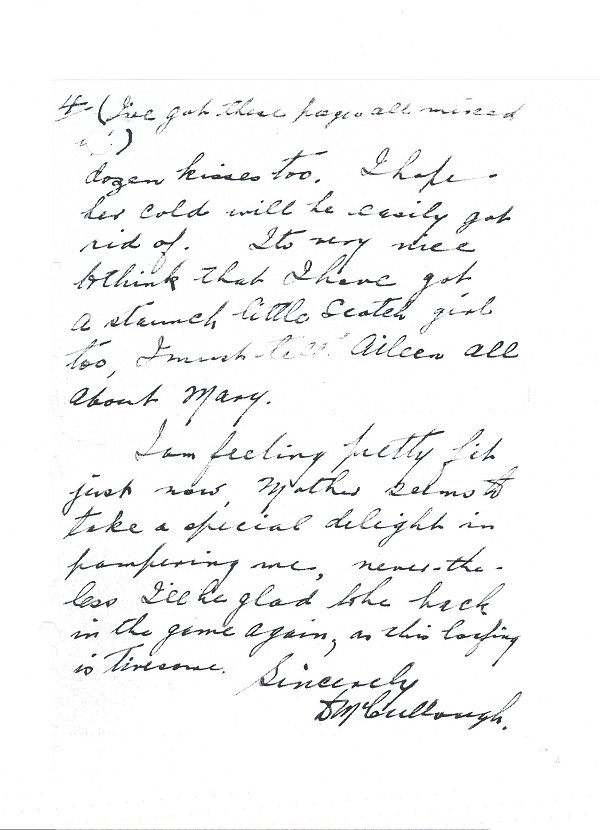 4- (I've got these pages all mixed
up!)
dozen kisses too. I hope
her cold will be easily got
rid of. Its very nice
to think that I have got
a staunch little Scotch girl
too, I must tell Aileen all
about Mary.
I am feeling pretty fit
just now, Mother seems to
take a special delight in
pampering me, never-the-
less I'll be glad to be back
in the game again, as this loafing
is tiresome.
Sincerely
D McCullough.